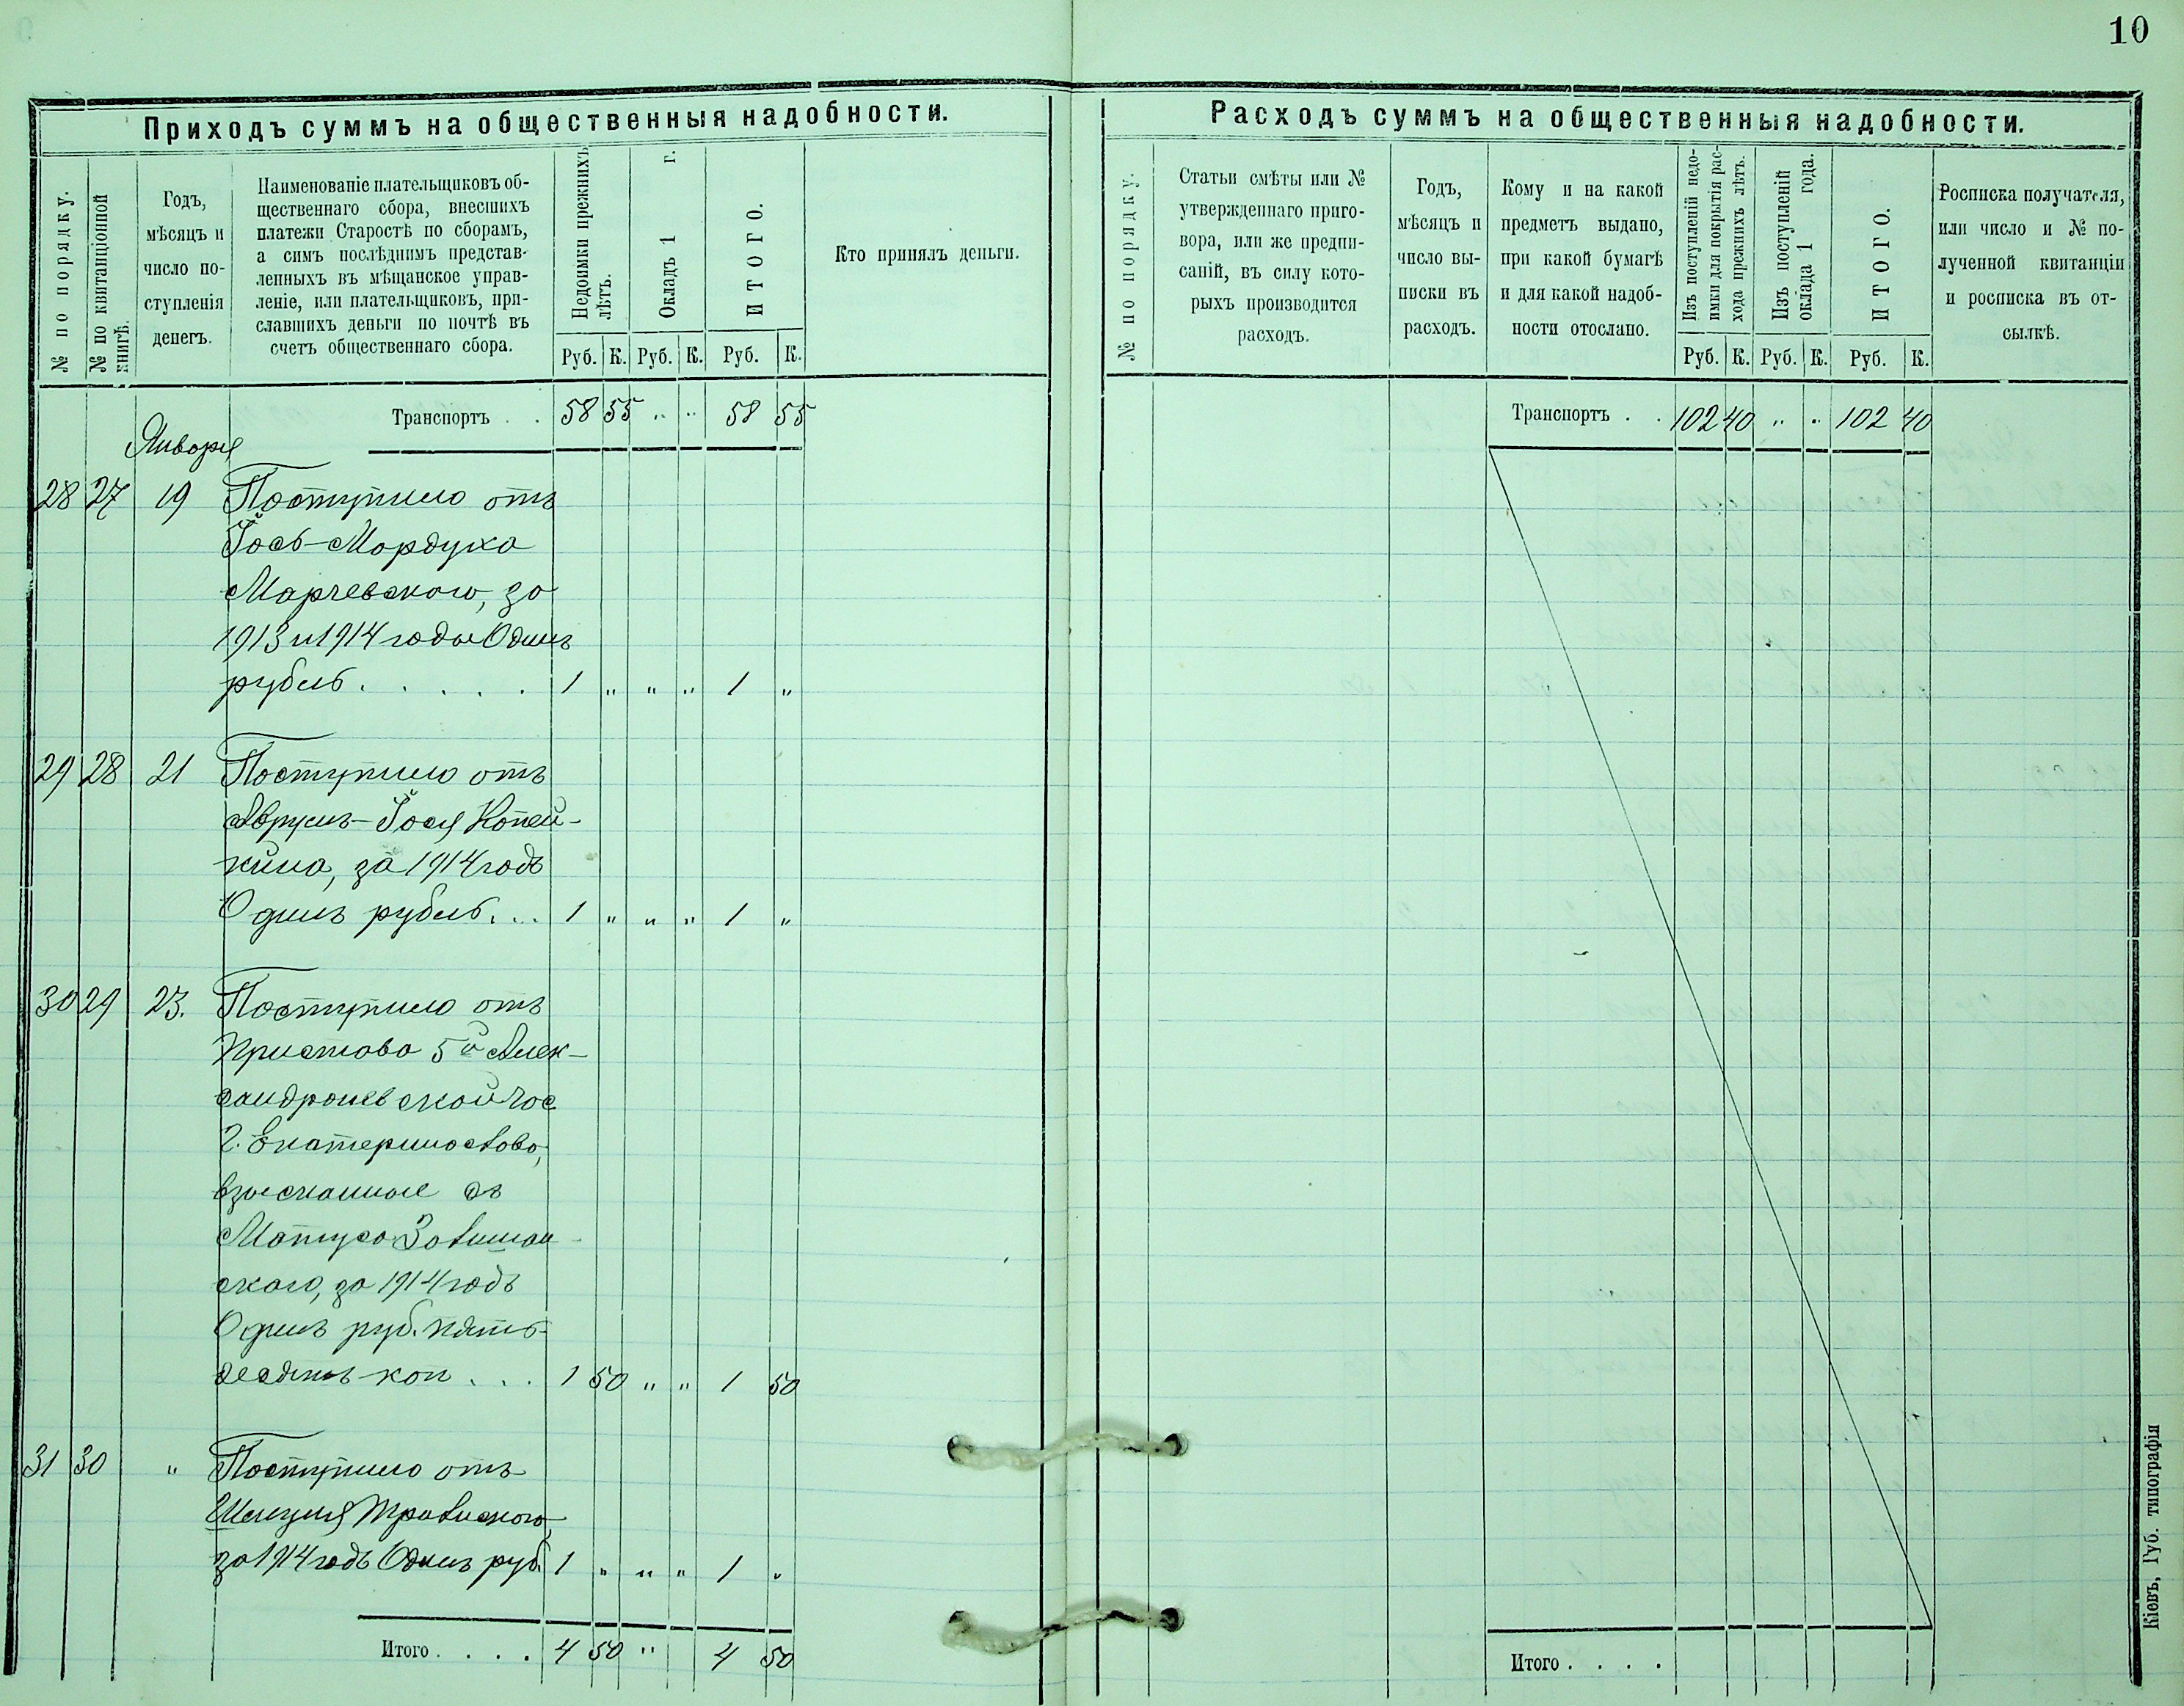 10
Приходъ суммъ на общественныя надобности.
№ по порядку.
№ по квитанціонной
книгѣ.
Годъ,
мѣсяцъ и
число по-
ступленія
денегъ.
Наименованіе плательщиковъ об-
щественнаго сбора, внесшихъ
платежи Старостѣ по сборамъ,
а симъ послѣднимъ представ-
ленныхъ въ мѣщанское управ-
леніе, или плательщиковъ, при-
славшихъ деньги по почтѣ въ
счетъ общественнаго сбора.
Недоимки прежнихъ
лѣтъ.
Окладъ 1 г.
ИТОГО.
Руб. К. Руб. К. Руб. К.
Кто принялъ деньги.
Транспортъ . . 58 55 „ „ 58 55
Января
28 27 19 Поступило отъ
Іось-Мордуха
Марчевского, за
1913 и 1914 годы Одинъ
рубль . . . . . 1 „ „ „ 1 „
29 28 21 Поступило отъ
Аврумъ-Іося Копей-
кина, за 1914 годъ
Одинъ рубль . . . 1 „ „ „ 1 „
30 29 23. Поступило отъ
Пристава 5й Алек-
сандроневской час
г. Екатеринослава,
взысканные съ
Матуса
ского, за 1914 годъ
Одинъ руб. пять-
десятъ коп . . . 1 50 „ „ 1 50
31 30 „ Поступило отъ
за 1914 годъ Одинъ руб. 1 „ „ „ 1 „
Итого . . . . 4 50 „ 4 50
Расходъ суммъ на общественныя надобности.
№ по порядку.
Статьи смѣты или №
утвержденнаго приго-
вора, или же предпи-
саній, въ силу кото-
рыхъ производится
расходъ.
Годъ,
мѣсяцъ и
число вы-
писки въ
расходъ.
Кому и на какой
предметъ выдано,
при какой бумагѣ
и для какой надоб-
ности отослано.
Изъ поступленій недо-
имки для покрытія рас-
хода прежнихъ лѣтъ.
Изъ поступленій
оклада 1 года.
ИТОГО.
Руб. К. Руб. К. Руб. К.
Росписка получателя,
или число и № по-
лученной квитанціи
и росписка въ от-
сылкѣ.
Транспортъ . . 102 40 „ „ 102 40
Итого . . . .
Кіевъ, Губ. типографія